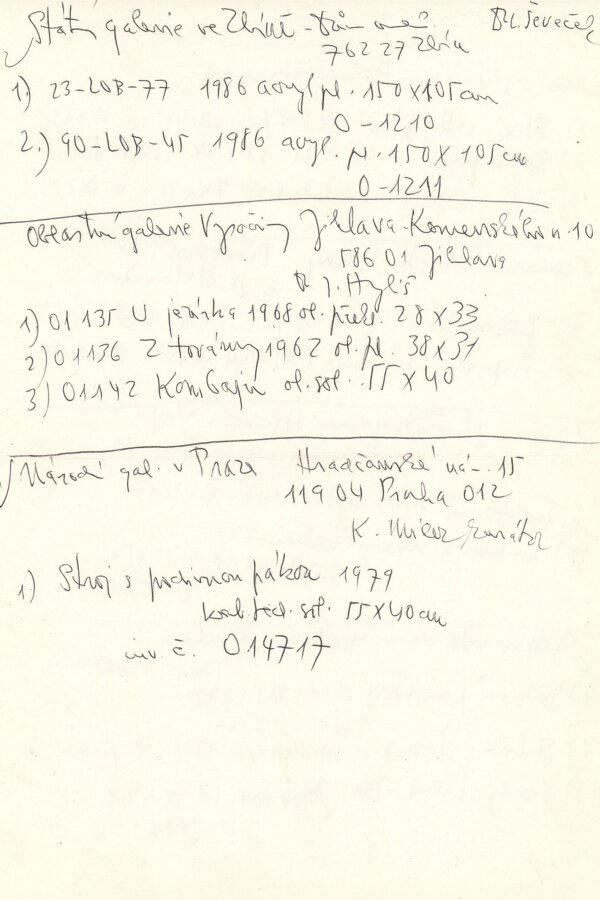 Státní galerie ve Zlíně - Dům um. Dr. L. Ševeček
762 27 Zlín
1) 23-LOB-77 1986 acryl pl. 150x105cm
O-1210
2.) 90-LOB-45 1986 acryl. pl. 150x105cm
O-1211
Oblastní galerie Vysočiny Jihlava - Komenského 10
586 01 Jihlava
Dr J. Hyliš
1) O1 135 U jezírka 1968 ol. překl. 28x33
2) O1136 Z továrny 1962 ol. pl. 38x31
3) O1142 Kombajn ol. sol. 55x40
Národní gal. v Praze Hradčanské nám. 15
119 04 Praha 012
K.
1) Stroj s pohybnou pákou 1979
komb. tech. sol. 55x40cm
inv. č. O14717